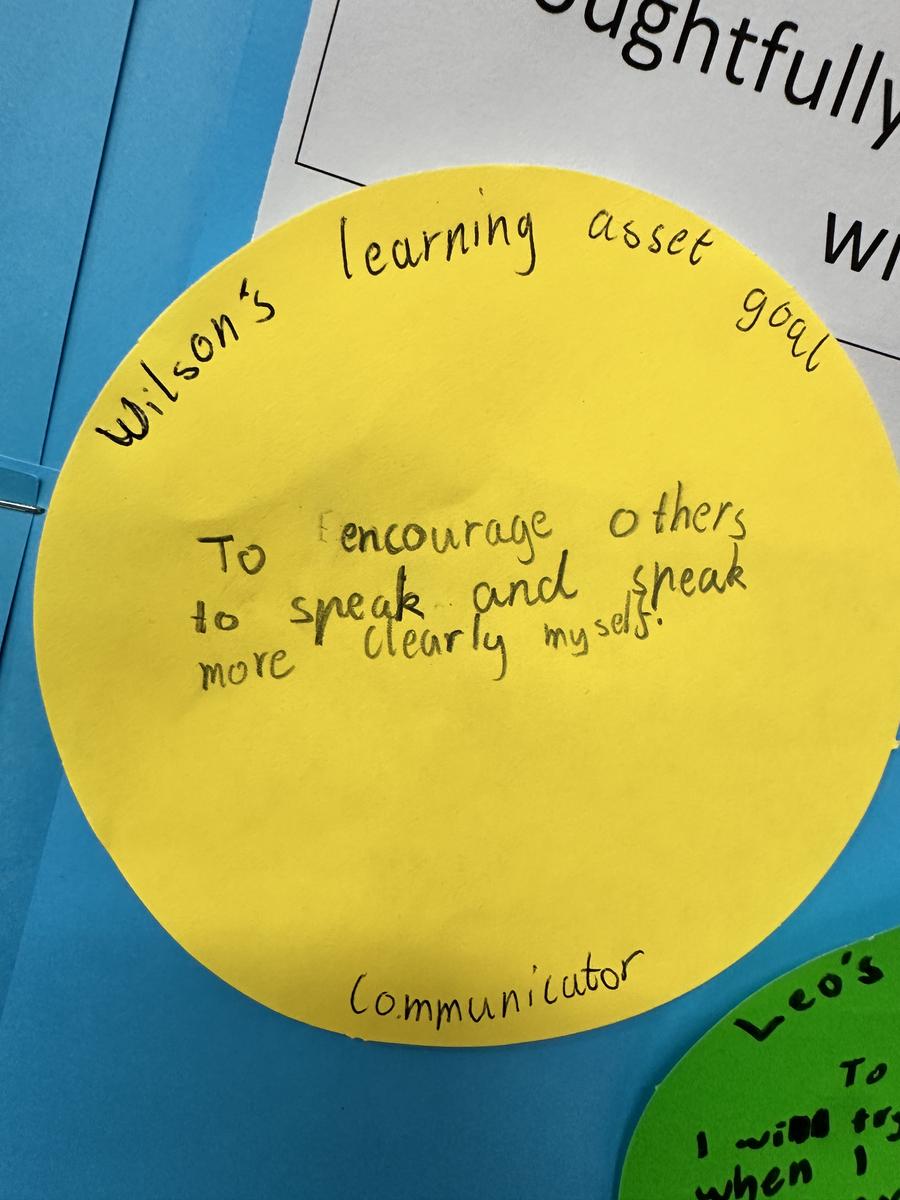 wi
Wilson's learning asset goal
To encourage others
to speak and speak
more clearly myself.
Communicator
Leo's
To
I will try
when I